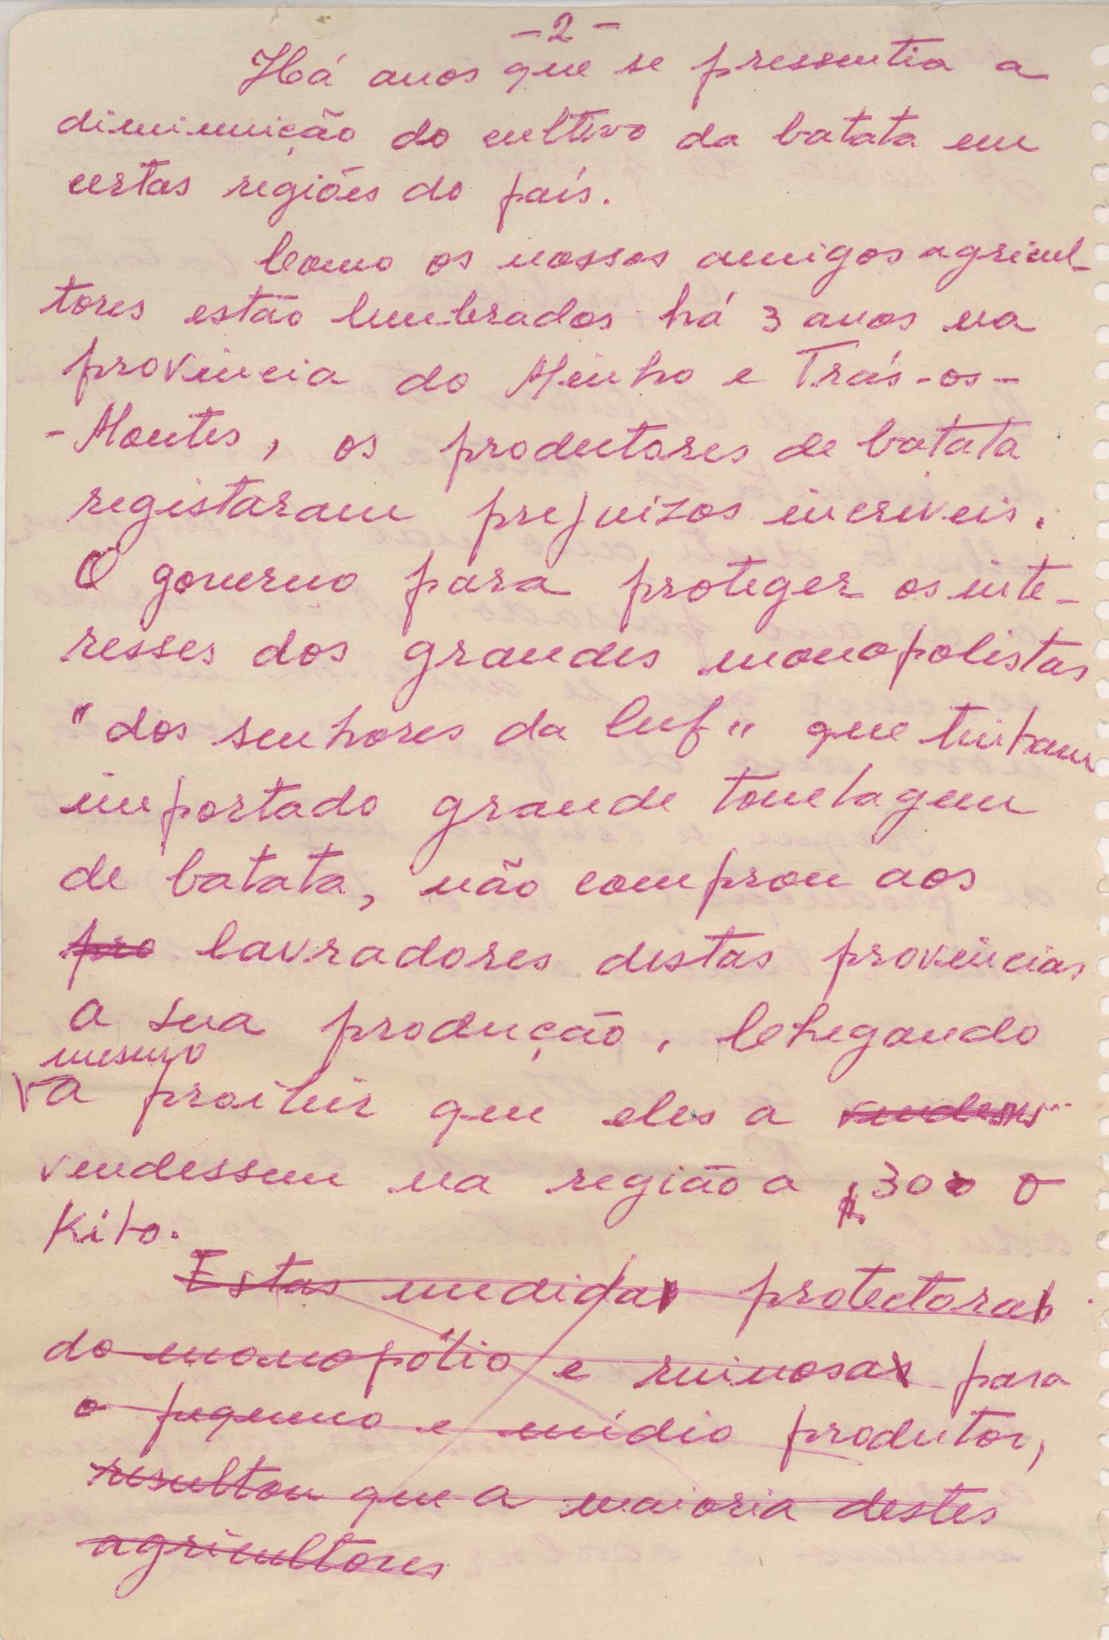 -2-
Há anos que se pressentia a
diminuição do cultivo da batata em
certas regiões do país.
Como os nossos amigos agricul-
tores estão lembrados há 3 anos na
provincia do Minho e Trás-os-
-Montes, os produtores de batata
registaram prejuizos incriveis.
O governo para proteger os inte-
resses dos grandes monopolistas
"dos senhores da Cuf" que tinham
importado grande tonelagem
de batata, não comprou aos
pro lavradores destas provincias
a sua produção. Chegando
mesmo
a proibir que eles a
vendessem na região a $30 o
kilo.
Estas medidas protectoras
do monopólio e ruinosas para
o pequeno e médio produtor,
resultou que a maioria destes
agricultores